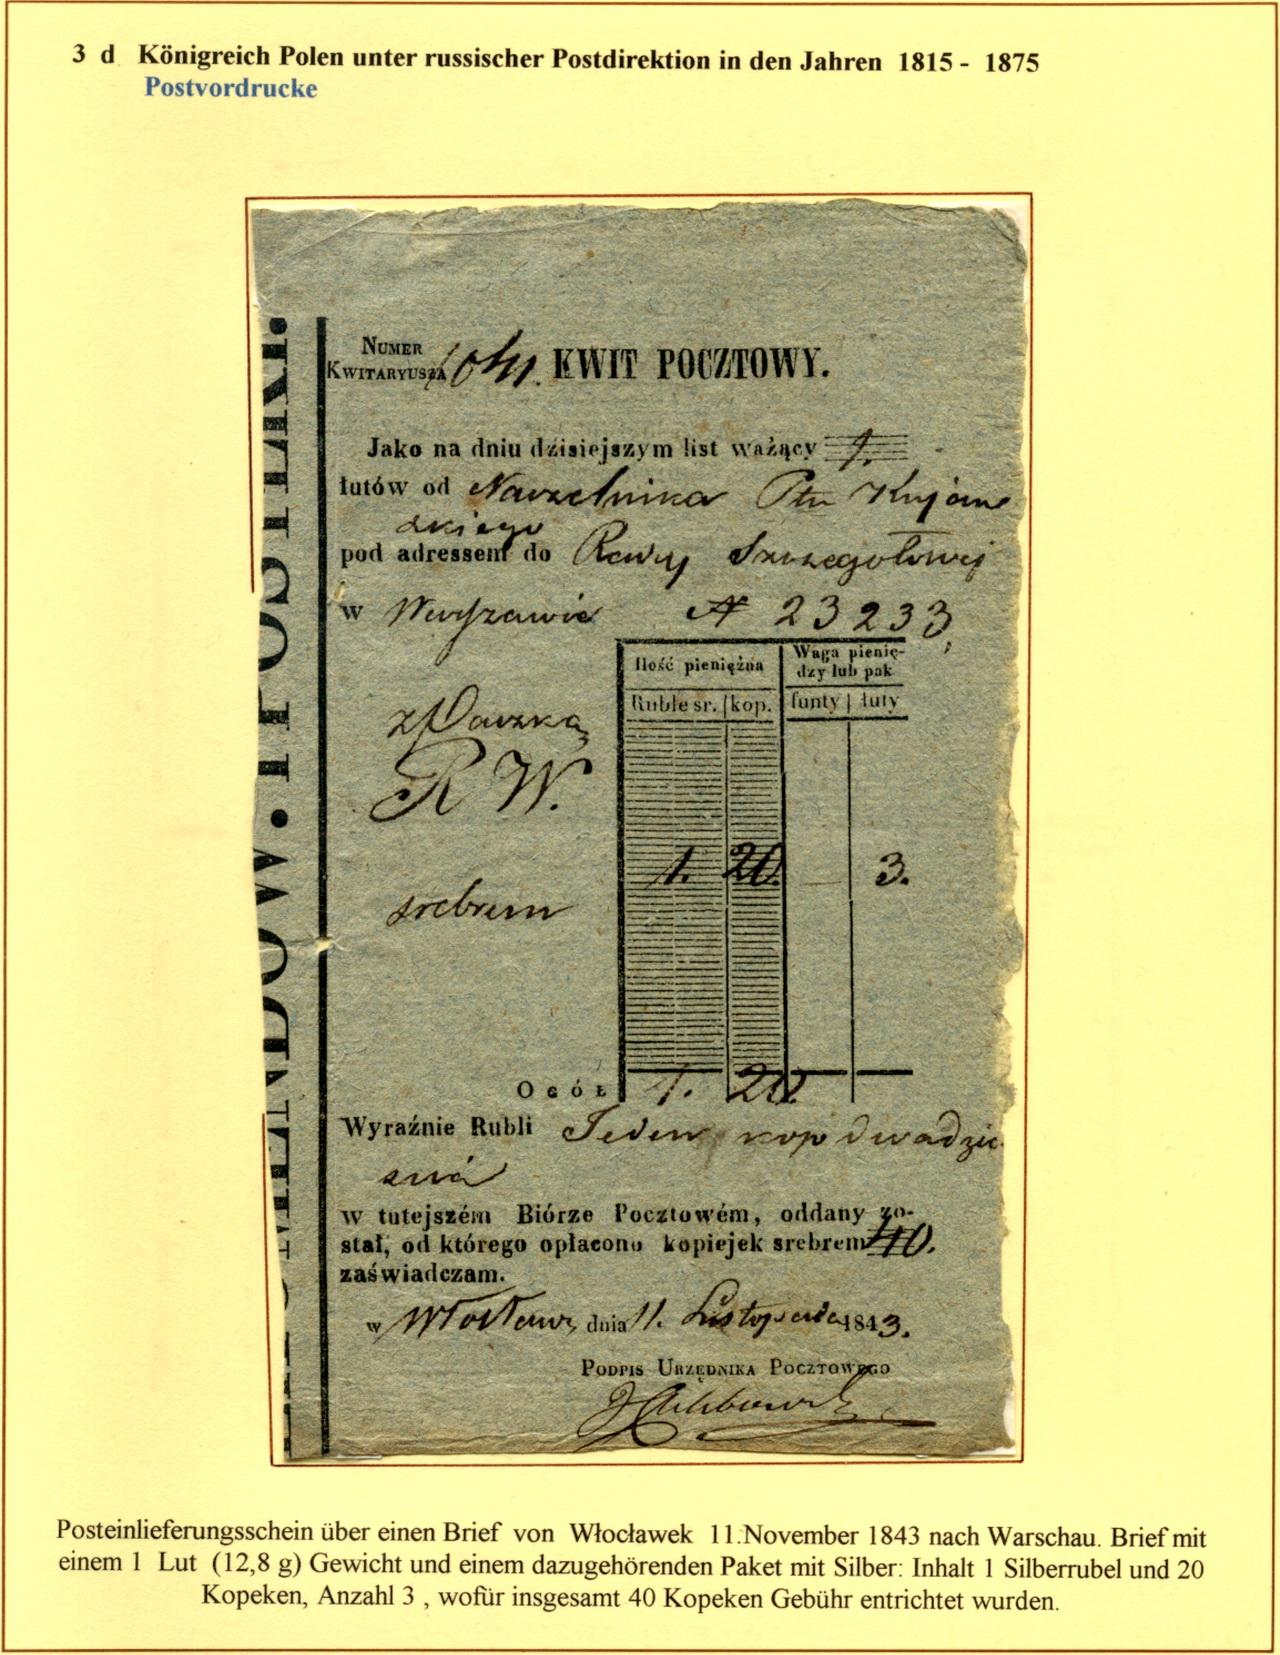 3 d Königreich Polen unter russischer Postdirektion in den Jahren 1815 - 1875
Postvordrucke
NUMER
KWITARYUSZA
KWIT POCZTOWY.
Jako na dniu dzisiejszym list ważący 1.
łutów od Naczelnika Ptu Kujaw
skiego
pod adressem do Rady Szczegółowej
w Warszawie N 23233,
Ilość pieniężna
Waga pienię-
dzy lub pak
Ruble sr. kop. funty łuty
z Paczką
R W.
1. 20. 3.
srebrem
OGÓŁ 1. 20.
Wyraźnie Rubli Jeden kop dwadzie
ścia
w tutejszém Biórze Pocztowém, oddany zo-
stał, od którego opłacono kopiejek srebrem 40.
zaświadczam.
w dnia 11. Listopada 1843.
PODPIS URZĘDNIKA POCZTOWEGO
Posteinlieferungsschein über einen Brief von Włocławek 11.November 1843 nach Warschau. Brief mit
einem 1 Lut (12,8 g) Gewicht und einem dazugehörenden Paket mit Silber: Inhalt 1 Silberrubel und 20
Kopeken, Anzahl 3 , wofür insgesamt 40 Kopeken Gebühr entrichtet wurden.